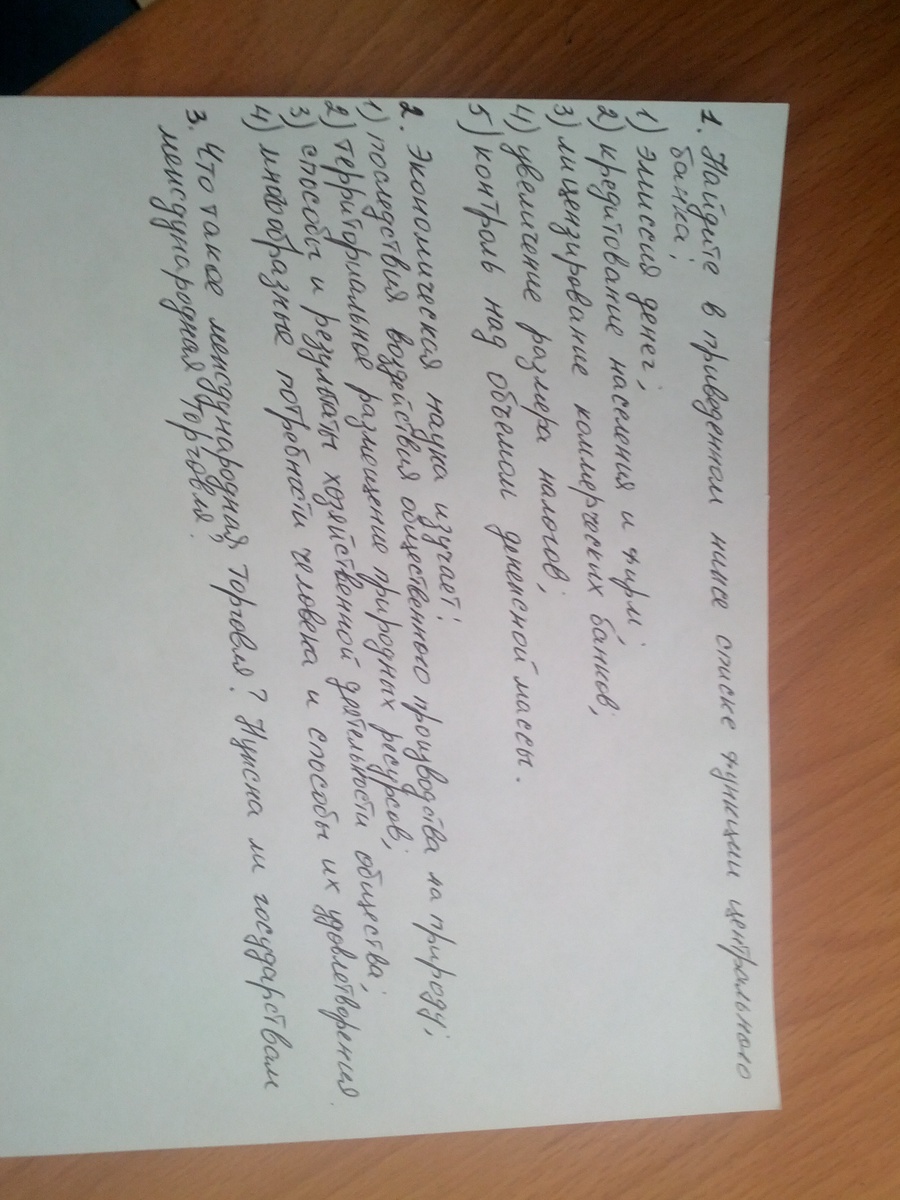 1. Найдите в приведенном ниже списке функции центрального
банка:
1) эмиссия денег;
2) кредитование населения и фирм;
3) лицензирование коммерческих банков;
4) увеличение размера налогов;
5) контроль над объемом денежной массы.
2. Экономическая наука изучает:
1) последствия воздействия общественного производства на природу;
2) территориальное размещение природных ресурсов;
3) способы и результаты хозяйственной деятельности общества;
4) многообразные потребности человека и способы их удовлетворения.
3. Что такое международная торговля? Нужна ли государствам
международная торговля.